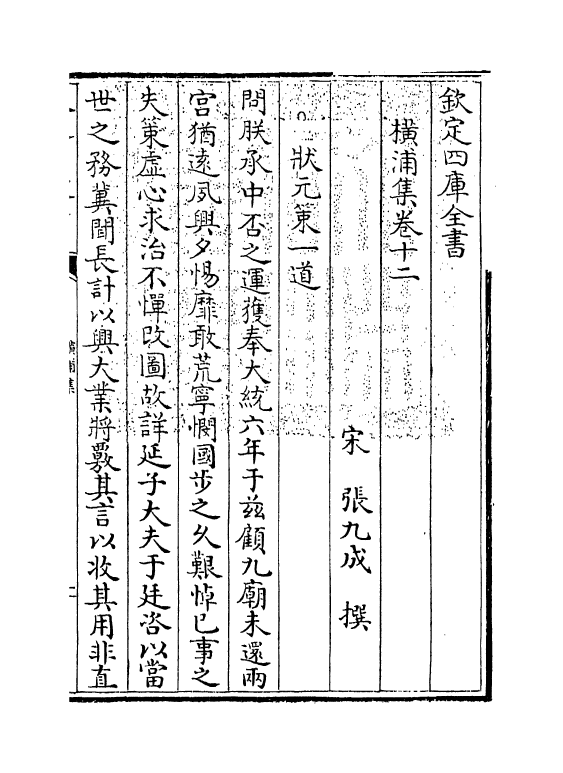 欽定四庫全書
橫浦集卷十二
宋 張九成 撰
狀元策一道
問朕承中否之運獲奉大統六年于兹顧九廟未還兩
宮猶遠夙興夕惕靡敢荒寧憫國步之久艱悼已事之
失策虛心求治不憚改圖故詳延子大夫于廷咨以當
世之務冀聞長計以興大業將覈其言以收其用非直